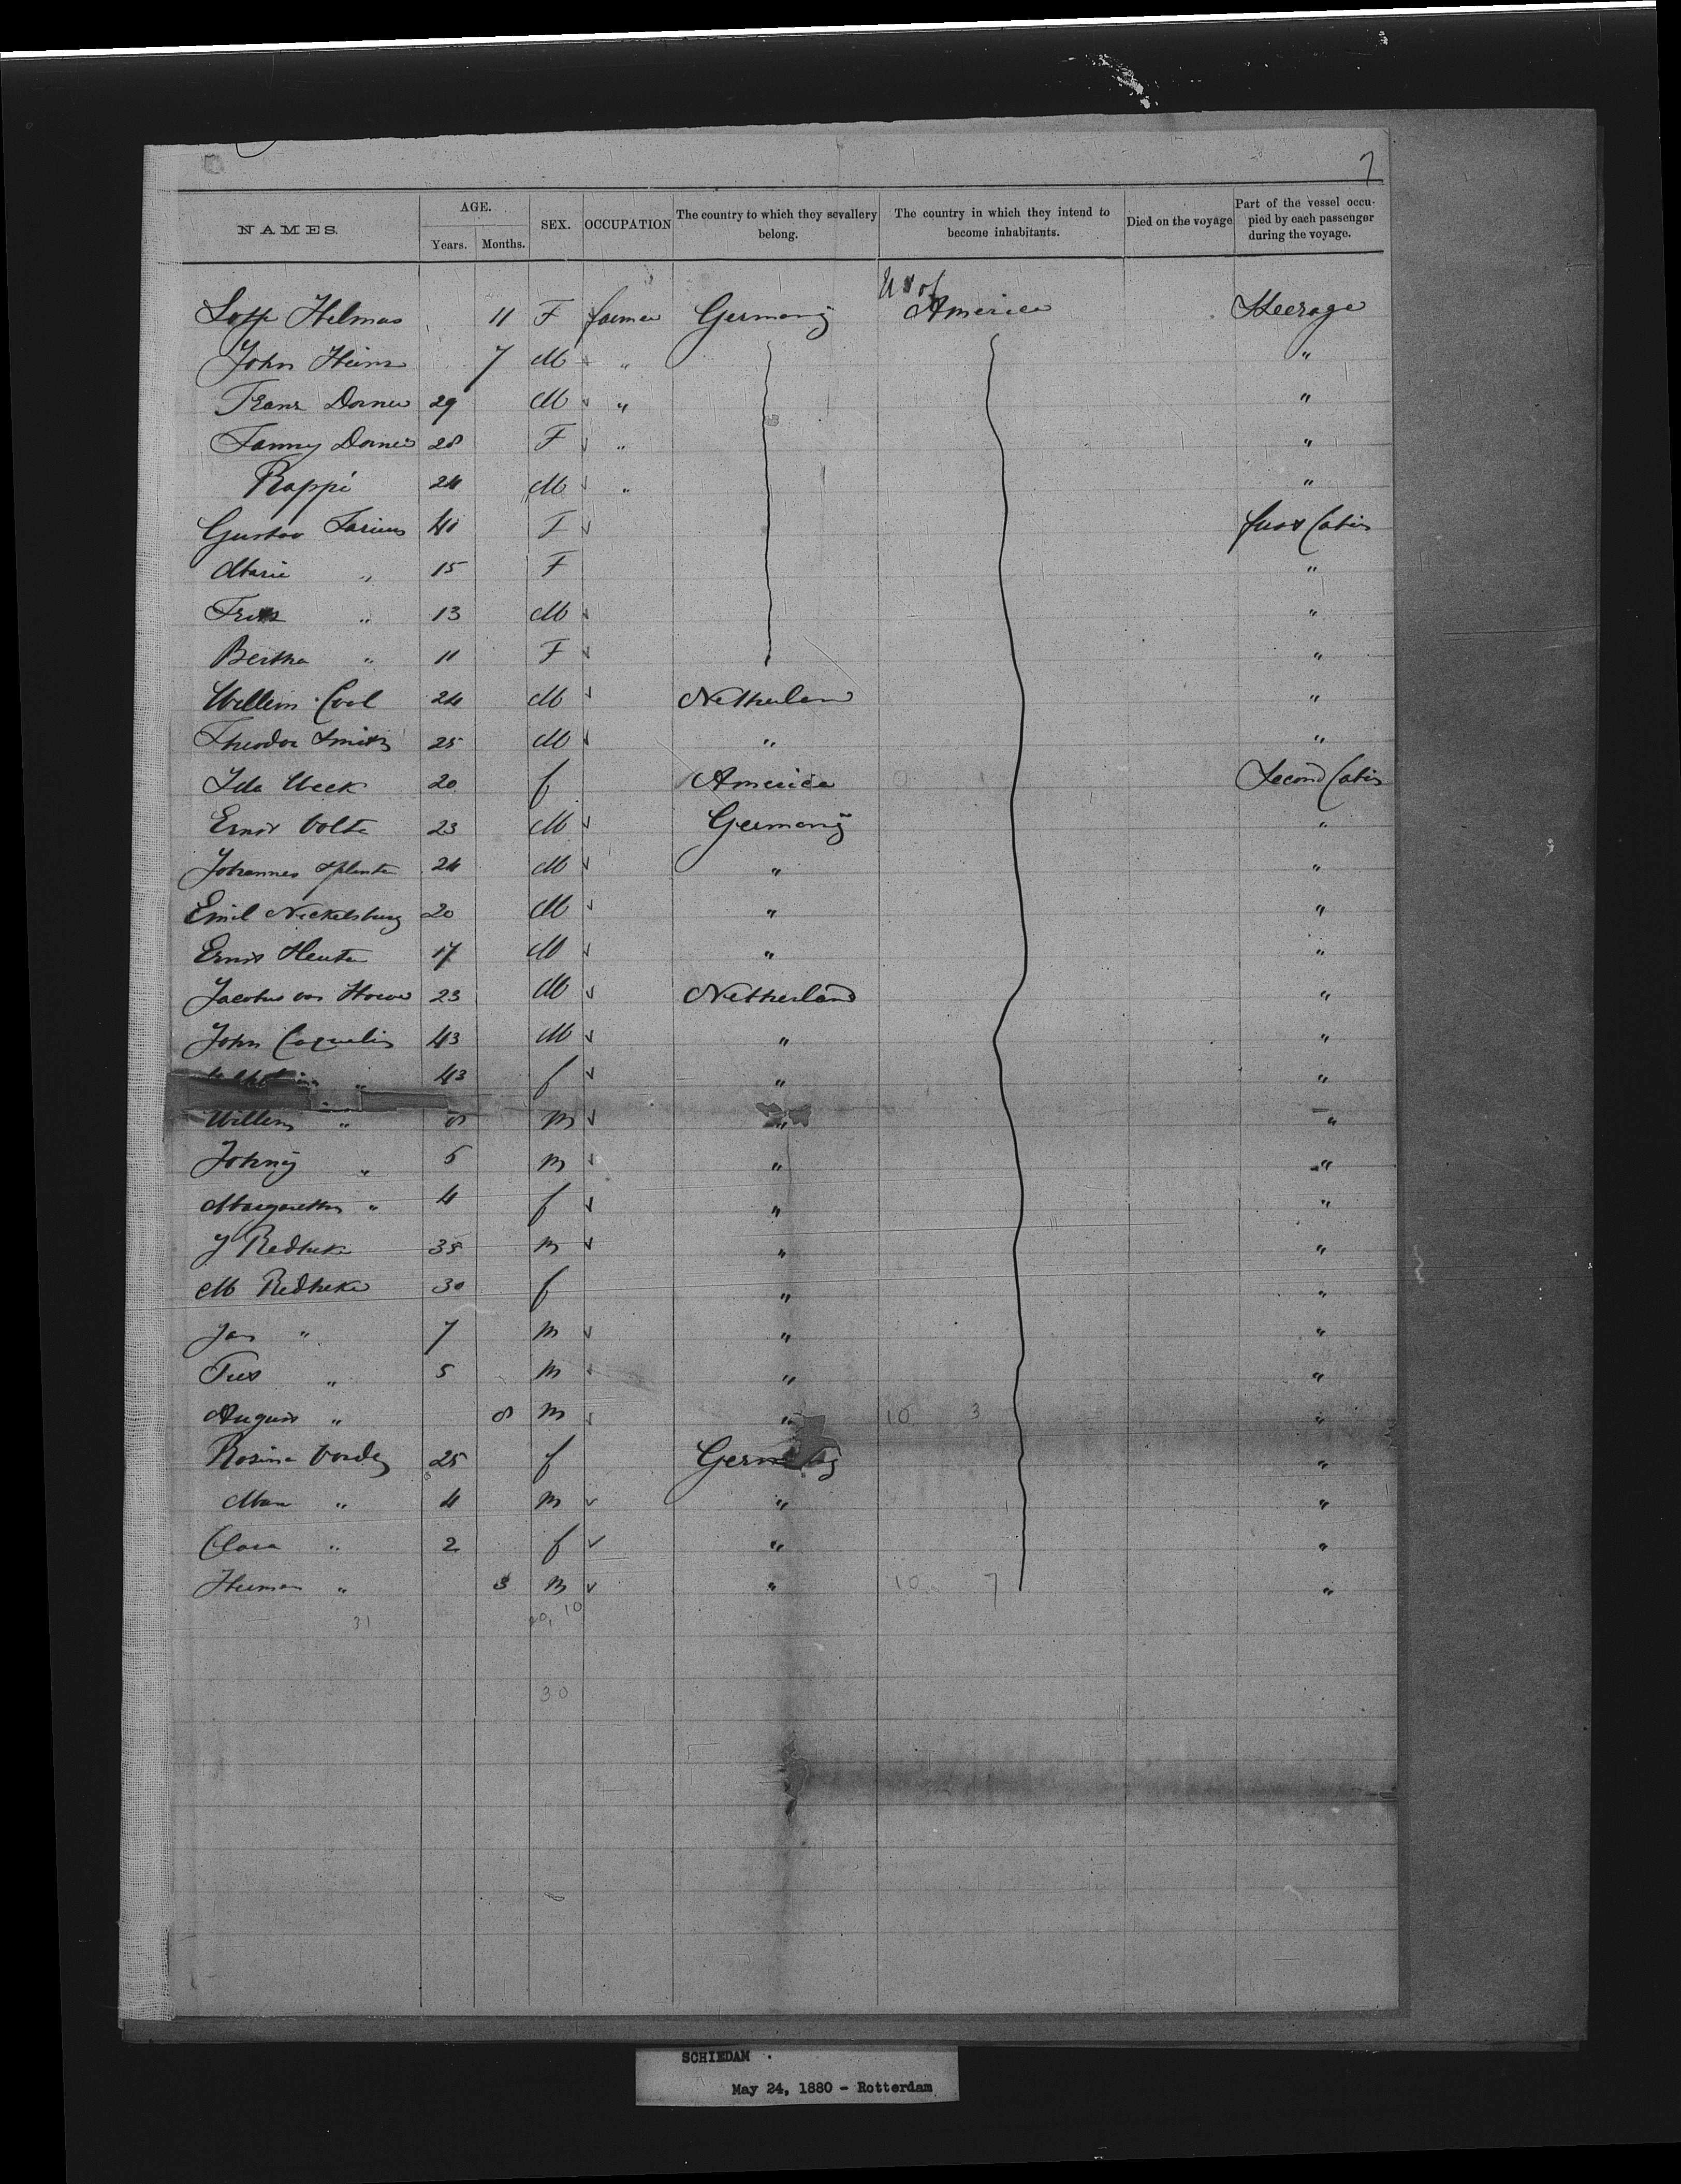 7
NAMES. AGE. Years. Months. SEX. OCCUPATION The country to which they sevallery belong. The country in which they intend to become inhabitants. Died on the voyage Part of the vessel occupied by each passenger during the voyage.
Helmas 11 F farmer Germany US of America Steerage
John Heinr 7 M " "
Franz Dorner 29 M " "
Fanny Dorner 28 F " "
Rappi 24 M " "
Gustav 41 F first Cabin
Marie " 15 F "
" 13 M "
Bertha " 11 F "
Willem Cool 24 M Netherlan "
Theodor Smith 25 M " "
Ida Week 20 f America Second Cabin
Ernst Volte 23 M Germany "
Johannes 24 M " "
Emil Nickelsburg 20 M " "
Ernst 17 M " "
Jacobus van 23 M Netherland "
John Coquelin 43 M " "
" 43 f " "
Willem " 8 m " "
Johny " 6 m " "
Margaretha " 4 f " "
J Redheke 35 m " "
M Redheke 30 f " "
Jan " 7 m " "
" 5 m " "
August " 8 m " 10 3 "
Rosina 25 f Germany "
Max " 4 m " "
Clara " 2 f " "
Herman " 3 m " 10 7 "
31 20, 10
30
SCHIEDAM .
May 24, 1880 - Rotterdam